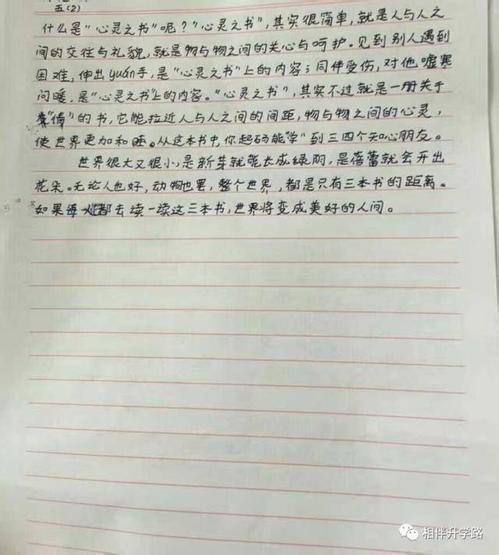 五(2)
什么是“心灵之书”呢?“心灵之书”,其实很简单,就是人与人之
间的交往与礼貌,就是物与物之间的关心与呵护。见到别人遇到
困难,伸出yuán手,是“心灵之书”上的内容;同伴受伤,对他嘘寒
问暖,是“心灵之书”上的内容。“心灵之书”,其实不过就是一册关于
“情”的书,它能拉近人与人之间的间距,物与物之间的心灵,
使世界更加和睦。从这本书中,你起码能“学”到三四个知心朋友。
世界很大又很小,是新芽就能长成绿荫,是蓓蕾就会开出
花朵。无论人也好,动物也罢,整个世界,都是只有三本书的距离。
如果都去读一读这三本书,世界将变成美好的人间。
相伴升学路